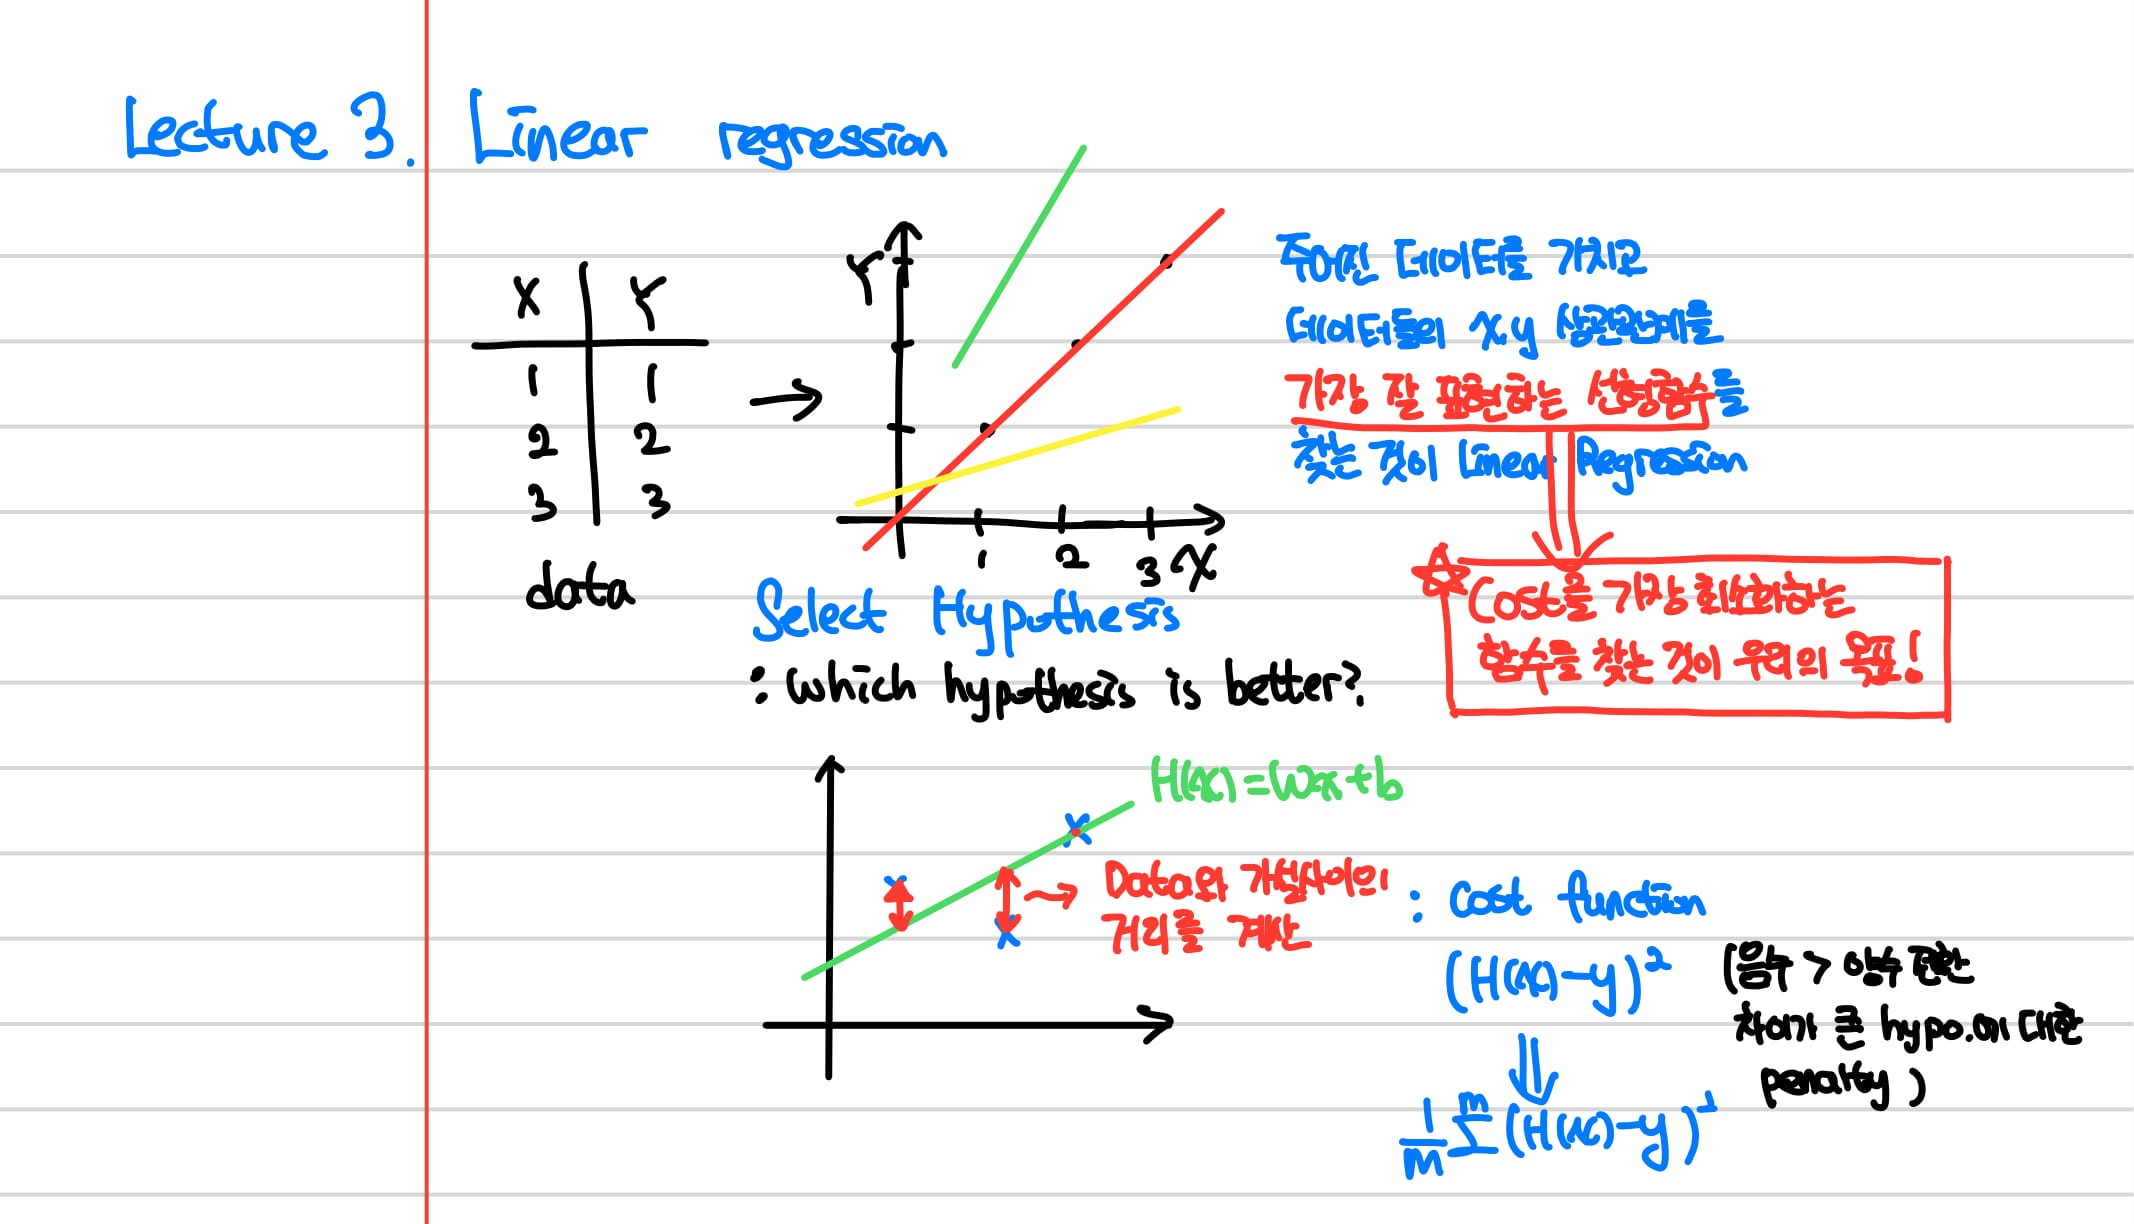 Lecture 3. Linear regression
X Y
1 1
2 2
3 3
data
Y
1 2 3 X
주어진 데이터를 가지고
데이터들의 x,y 상관관계를
가장 잘 표현하는 선형함수를
찾는 것이 Linear Regression
Cost를 가장 최소화하는
함수를 찾는 것이 우리의 목표!
Select Hypothesis
: which hypothesis is better?
H(x)=Wx+b
Data와 가설사이의
거리를 계산
: cost function
(H(x)-y)²
(음수 > 양수 전환
차이가 큰 hypo.에 대한
penalty)
1/m m Σ (H(x)-y)²